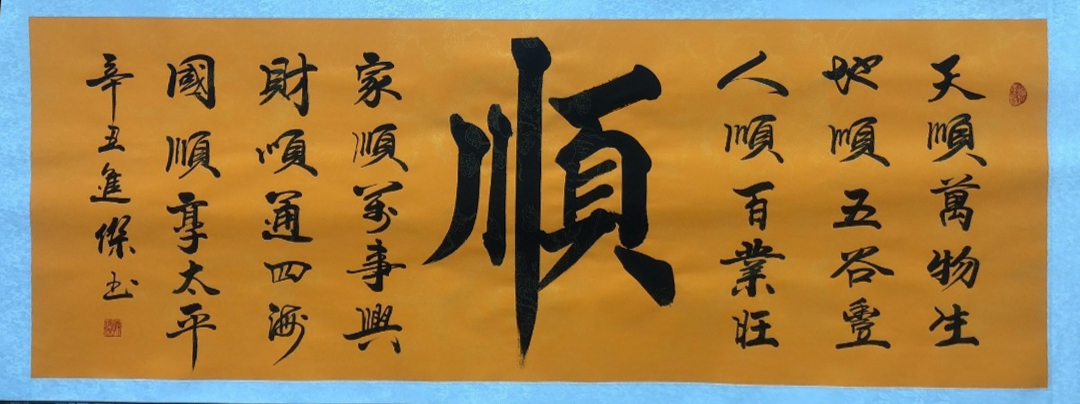 天順萬物生
地順五谷豐
人順百業旺
順
家順萬事興
財順通四海
國順享太平
辛丑進傑书